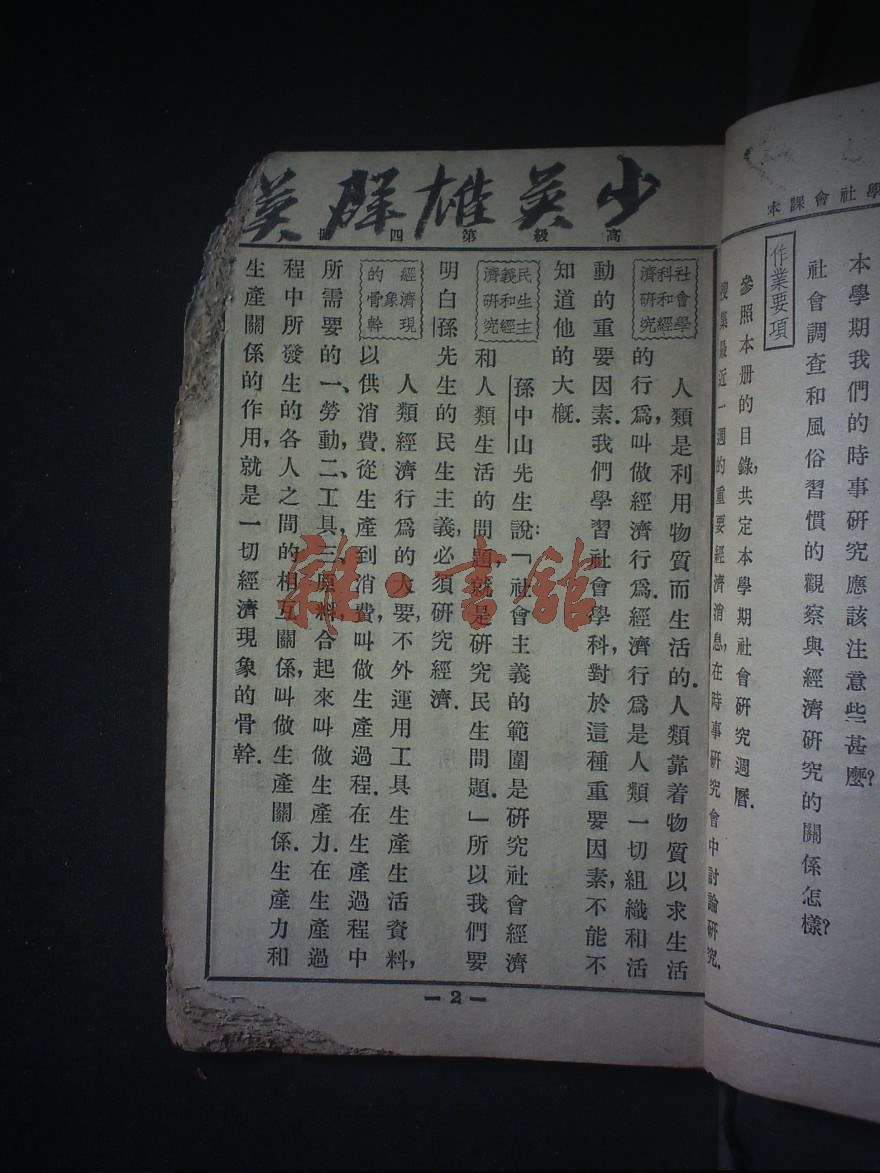 學社會課本
本學期我們的時事研究應該注意些甚麼?
社會調查和風俗習慣的觀察與經濟研究的關係怎樣?
作業要項
參照本册的目錄,共定本學期社會研究週曆.
搜集最近一週的重要經濟消息,在時事研究會中討論研究.
少英雄群英
高級第四册
社會學科和經濟研究
人類是利用物質而生活的.人類靠着物質以求生活
的行爲,叫做經濟行爲.經濟行爲是人類一切組織和活
動的重要因素.我們學習社會學科,對於這種重要因素,不能不
知道他的大概.
民生主義和經濟研究
孫中山先生說:「社會主義的範圍是研究社會經濟
和人類生活的問題,就是研究民生問題.」所以我們要
明白孫先生的民生主義,必須研究經濟.
經濟現象的骨幹
人類經濟行爲的大要,不外運用工具生產生活資料,
以供消費.從生產到消費,叫做生產過程.在生產過程中
所需要的一、勞動,二、工具,三、原料,合起來叫做生產力.在生產過
程中所發生的各人之間的相互關係,叫做生產關係.生產力和
生產關係的作用,就是一切經濟現象的骨幹.
— 2 —
雜·書館